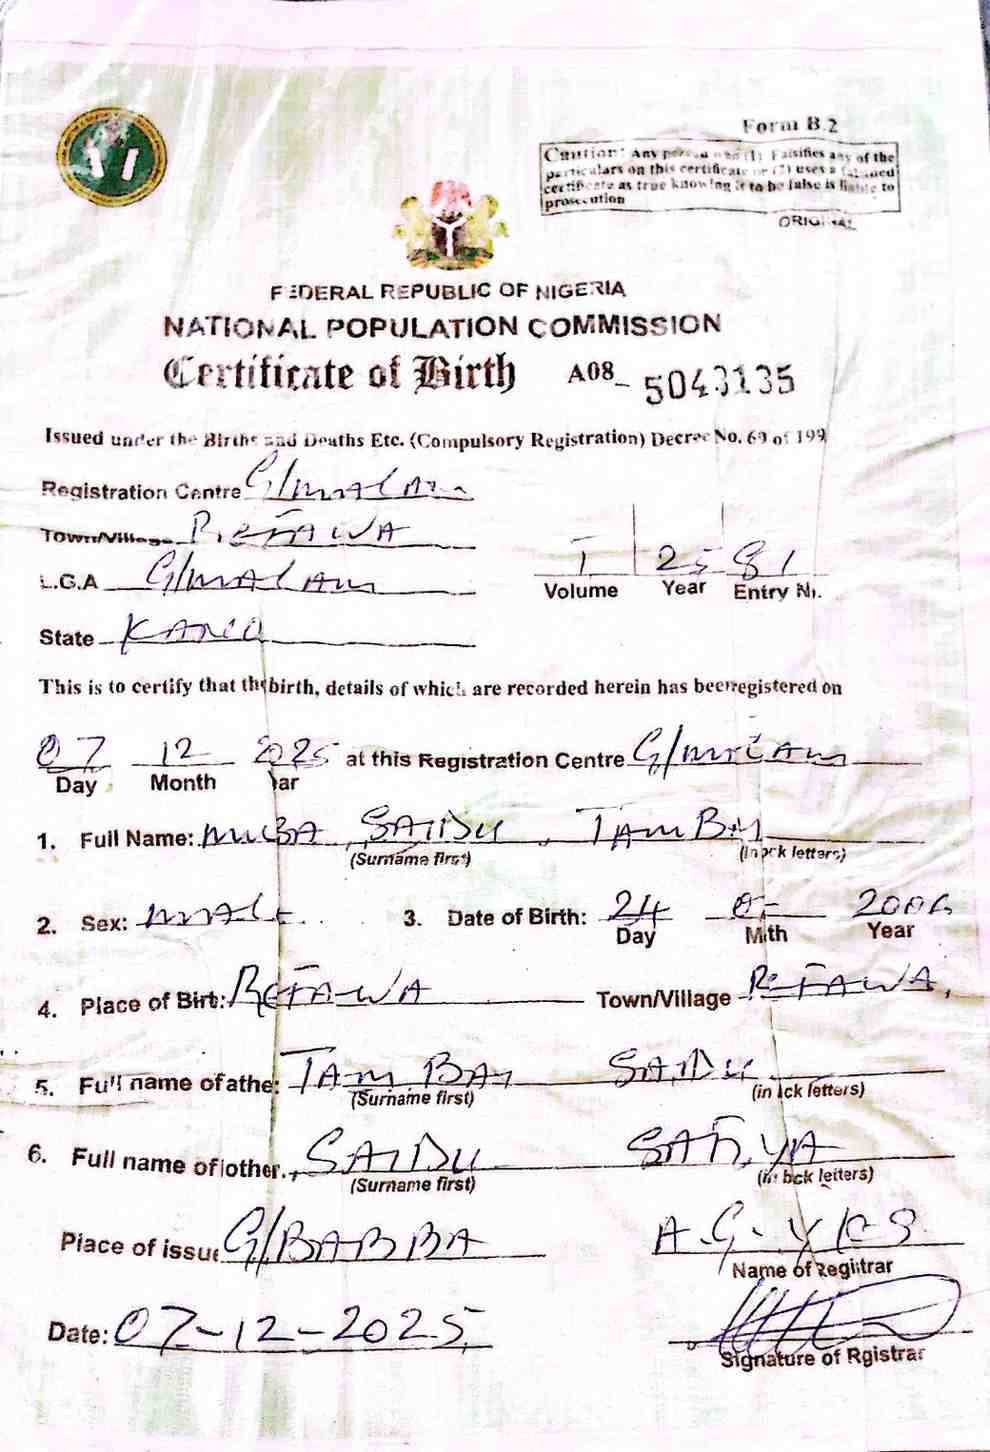 Form B.2
Caution: Any person who (1) Falsifies any of the
particulars on this certificate or (2) uses a falsified
certificate as true knowing it to be false is liable to
prosecution
ORIGINAL
FEDERAL REPUBLIC OF NIGERIA
NATIONAL POPULATION COMMISSION
Certificate of Birth A08_ 5043135
Issued under the Births and Deaths Etc. (Compulsory Registration) Decree No. 69 of 199
Registration Centre G/MALAM
Town/Village REFAWA
L.G.A G/MALAM
1 25 81
Volume Year Entry Nr.
State KANO
This is to certify that the birth, details of which are recorded herein has been registered on
07 12 2025 at this Registration Centre G/MALAM
Day Month ar
1. Full Name: SAIDU, TAMBAI
(Surname first) (In ock letters)
2. Sex: MALE 3. Date of Birth: 24 2006
Day Mth Year
4. Place of Birt: REFAWA Town/Village REFAWA,
5. Full name of athe: TAMBAI SAIDU
(Surname first) (in ock letters)
6. Full name of other., SAIDU SAFIYA
(Surname first) (in bck letters)
Place of issue G/BABBA A.G.
Name of Regiitrar
Date: 07-12-2025
Signature of Rgistrar